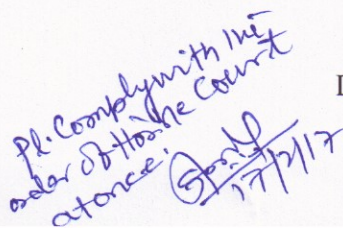 Pl. Comply with the
order of Hon'ble Court
at once.
17/2/17